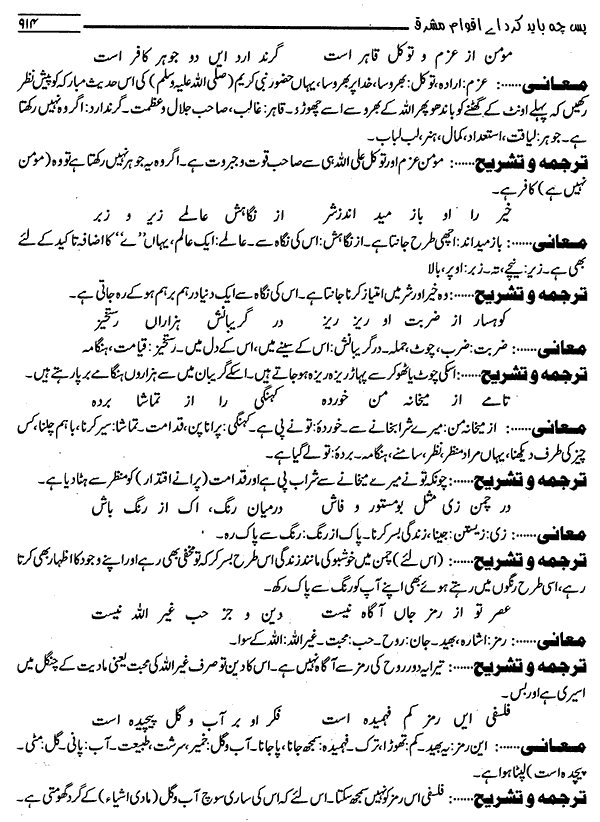 پس چہ باید کرد اے اقوام مشرق ۹۱۴
مؤمن از عزم و توکل قاہر است گر ندارد ایں دو جوہر کافر است
معانی……: عزم: ارادہ، توکل: بھروسا، خدا پر بھروسا، یہاں حضور نبی کریم (صلی اللہ علیہ وسلم) کی اس حدیث مبارکہ کو پیش نظر
رکھیں کہ پہلے اونٹ کے گھٹنے کو باندھو پھر اللہ کے بھروسے اسے چھوڑو۔ قاہر: غالب، صاحب جلال و عظمت۔ گر ندارد: اگر وہ نہیں رکھتا
ہے۔ جوہر: لیاقت، استعداد، کمال، ہنر، لب لباب۔
ترجمہ و تشریح……: مؤمن عزم اور توکل علی اللہ ہی سے صاحب قوت و جبروت ہے۔ اگر وہ یہ جوہر نہیں رکھتا ہے تو وہ (مؤمن
نہیں ہے) کافر ہے۔
خیر را او باز میداند ز شر از نگاہش عالمے زیر و زبر
معانی……: باز میداند: اچھی طرح جانتا ہے۔ از نگاہش: اس کی نگاہ سے۔ عالمے: ایک عالم، یہاں ’’ے‘‘ کا اضافہ تاکید کے لئے
بھی ہے۔ زیر: نیچے، تہ۔ زبر: اوپر، بالا
ترجمہ و تشریح……: وہ خیر اور شر میں امتیاز کرنا جانتا ہے۔ اس کی نگاہ سے ایک دنیا درہم برہم ہو کے رہ جاتی ہے۔
کوہسار از ضربت او ریز ریز در گریبانش ہزاراں رستخیز
معانی……: ضربت: ضرب، چوٹ، حملہ۔ در گریبانش: اس کے سینے میں، اس کے دل میں۔ رستخیز: قیامت، ہنگامہ
ترجمہ و تشریح……: اسکی چوٹ یا ٹھوکر سے پہاڑ ریزہ ریزہ ہو جاتے ہیں۔ اسکے گریبان میں سے ہزاروں ہنگامے برپا رہتے ہیں۔
تا مے از میخانہ من خوردہ کہنگی را از تماشا بردہ
معانی……: از میخانہ من: میرے شراب خانے سے۔ خوردۂ: تو نے پی ہے۔ کہنگی: پرانا پن، قدامت۔ تماشا: سیر کرنا، باہم چلنا، کس
چیز کی طرف دیکھنا، یہاں مراد منظر، نظر، سامنے، ہنگامہ۔ بردۂ: تو لے گیا ہے۔
ترجمہ و تشریح……: چونکہ تو نے میرے میخانے سے شراب پی ہے اور قدامت (پرانے اقتدار) کو منظر سے ہٹا دیا ہے۔
در چمن زی مثل بو مستور و فاش درمیان رنگ، اک از رنگ باش
معانی……: زی: زیستن: جینا، زندگی بسر کرنا۔ پاک از رنگ: رنگ سے پاک رہ۔
ترجمہ و تشریح……: (اس لئے) چمن میں خوشبو کی مانند زندگی اس طرح بسر کر کہ تو مخفی بھی رہے اور اپنے وجود کا اظہار بھی کرتا
رہے، اسی طرح رنگوں میں رہتے ہوئے بھی اپنے آپ کو رنگ سے پاک رکھ۔
عصر تو از رمز جاں آگاہ نیست دین و جز حب غیر اللہ نیست
معانی……: رمز: اشارہ، بھید۔ جان: روح۔ حب: محبت۔ غیر اللہ: اللہ کے سوا۔
ترجمہ و تشریح……: تیرا یہ دور روح کی رمز سے آگاہ نہیں ہے۔ اس کا دین تو صرف غیر اللہ کی محبت یعنی مادیت کے چنگل میں
اسیری ہے اور بس۔
فلسفی ایں رمز کم فہمیدہ است فکر او بر آب و گل پیچیدہ است
معانی……: این رمز: یہ بھید۔ کم: تھوڑا، ترک۔ فہمیدہ: سمجھ جانا، پا جانا۔ آب و گل: خمیر، سرشت، طبیعت۔ آب: پانی۔ گل: مٹی۔
پیچیدہ است) لپٹا ہوا ہے۔
ترجمہ و تشریح……: فلسفی اس رمز کو نہیں سمجھ سکتا۔ اس لئے کہ اس کی ساری سوچ آب و گل (مادی اشیاء) کے گرد گھومتی ہے۔